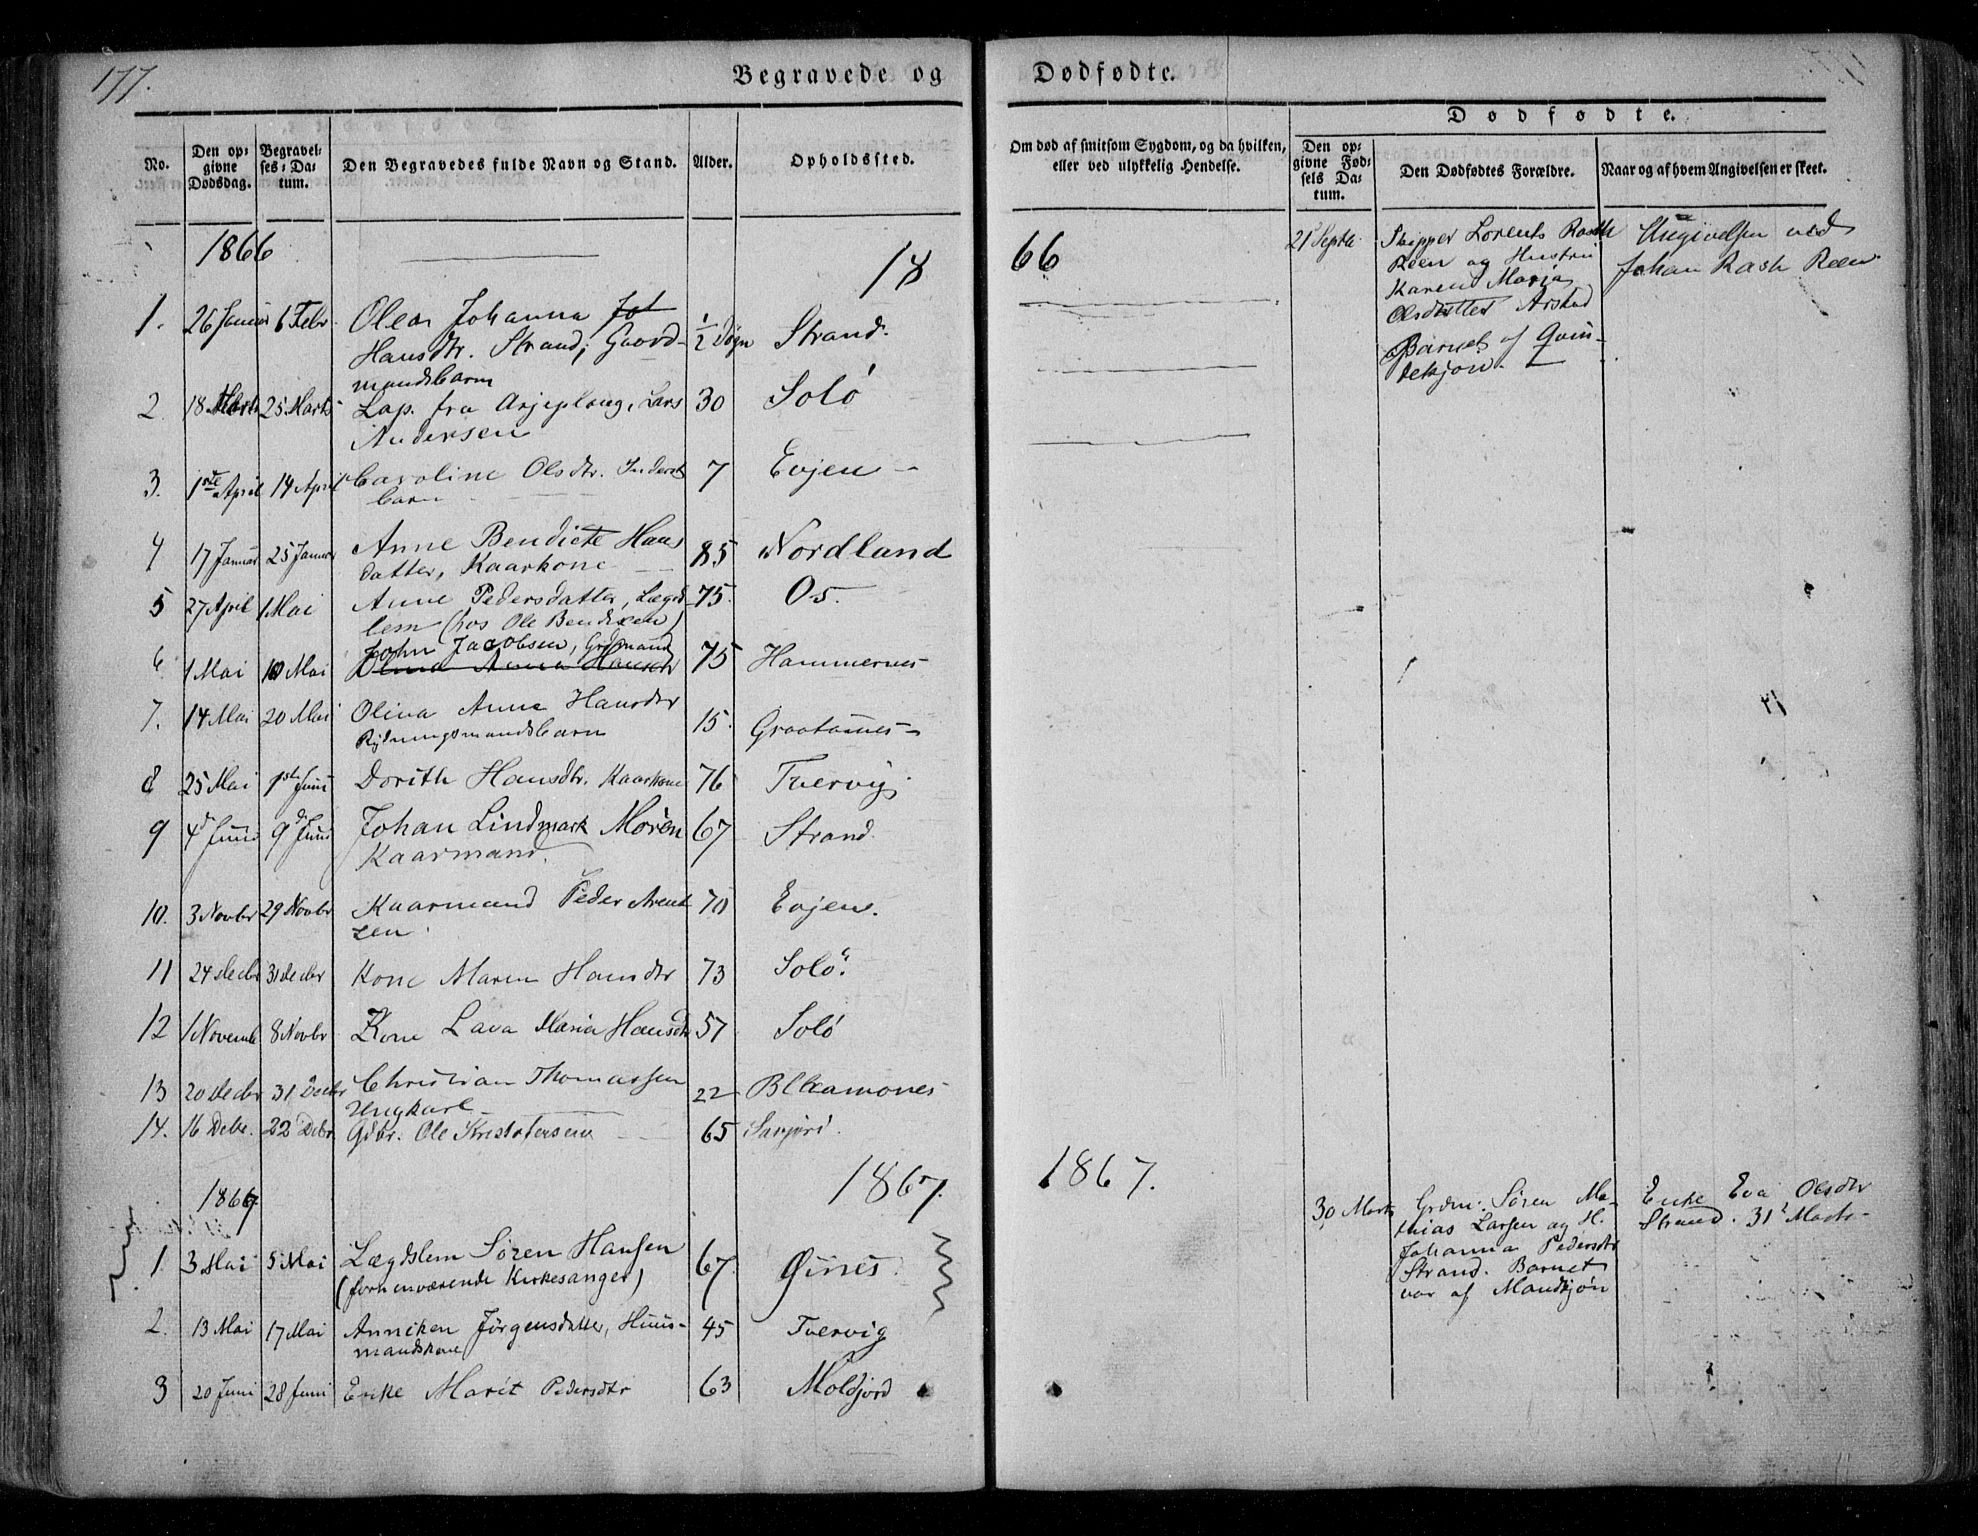 177.
Begravede og
No.
Den op-
givne
Dødsdag.
Begravel-
ses-Da-
tum.
Den Begravedes fulde Navn og Stand.
Alder.
Opholdssted.
1866
18
1. 26 Januar 6 Febr. Olea Johanna
Hansdtr. Strand, Gaard- 1/2 Døgn Strand.
mandsbarn
2. 18 Marts 25 Marts Lap. fra Arjeploug, Lars 30 Solø
Andersen
3. 1ste April 14 April Caroline Olsdtr. Inderst 7 Evjen
barn
4 17 Januar 25 Januar Anne Bendicte Hans 85 Nordland
datter, Kaarkone
5 27 April 1 Mai Anne Pedersdatter, Lægds- 75. Os.
lem (hos Ole Bendixen)
6 1 Mai 10 Mai John Jacobsen, Grdmand 75 Hammernes
Olina Anna Hansdtr
7. 14 Mai 20 Mai Olina Anne Hansdtr 15. Graatænes
Rydningsmandsbarn
8 25 Mai 1ste Juni Dorith Hansdtr. Kaarkone 76 Tvervig
9 4d Juni 9d Juni Johan Lindmark Morén 67 Strand.
Kaarmand.
10. 3 Novbr 29 Novbr Kaarmand Peder Arent 70 Evjen.
zen.
11 24 Decbr 31 Decbr Kone Maren Hansdtr 73 Solø.
12 1 Novemb 8 Novbr Kone Lava Maria Hansdtr 57 Solø
13 20 Decbr 31 Decbr Christian Thomassen 22 Blkamones
Ungkarl
14. 16 Debr. 22 Debr Gdbr. Ole Kristofersen 65 Savjord.
1867
1867.
1. 3 Mai 5 Mai Lægdslem Søren Hansen 67. Øines
(forhenværende Kirkesanger)
2. 13 Mai 17 Mai Anniken Jørgensdatter, Huus- 45 Tvervig
mandskone
3 20 Juni 28 Juni Enke Marit Pedersdtr 63 Moldjord
Dødfødte.
Om død af smitsom Sygdom, og da hvilken,
eller ved ulykkelig Hendelse.
Dødfødte.
Den op-
givne Fød-
sels Da-
tum.
Den Dødfødtes Forældre.
Naar og af hvem Angivelsen er skeet.
66
21 Septb. Skipper Lorents Rasch
Reen og Hustru
Karen Maria
Olsdatter Arstad
Barnet af Qvin-
dekjøn.
Angivelsen ved
Johan Rash Reen.
1867.
30 Marts Grdm: Søren Ma-
thias Larsen og H.
Johanna Pedersdtr
Strand. Barnet
var af Mandkjøn
Enke Eva Olsdtr
Strand. 31 Marts